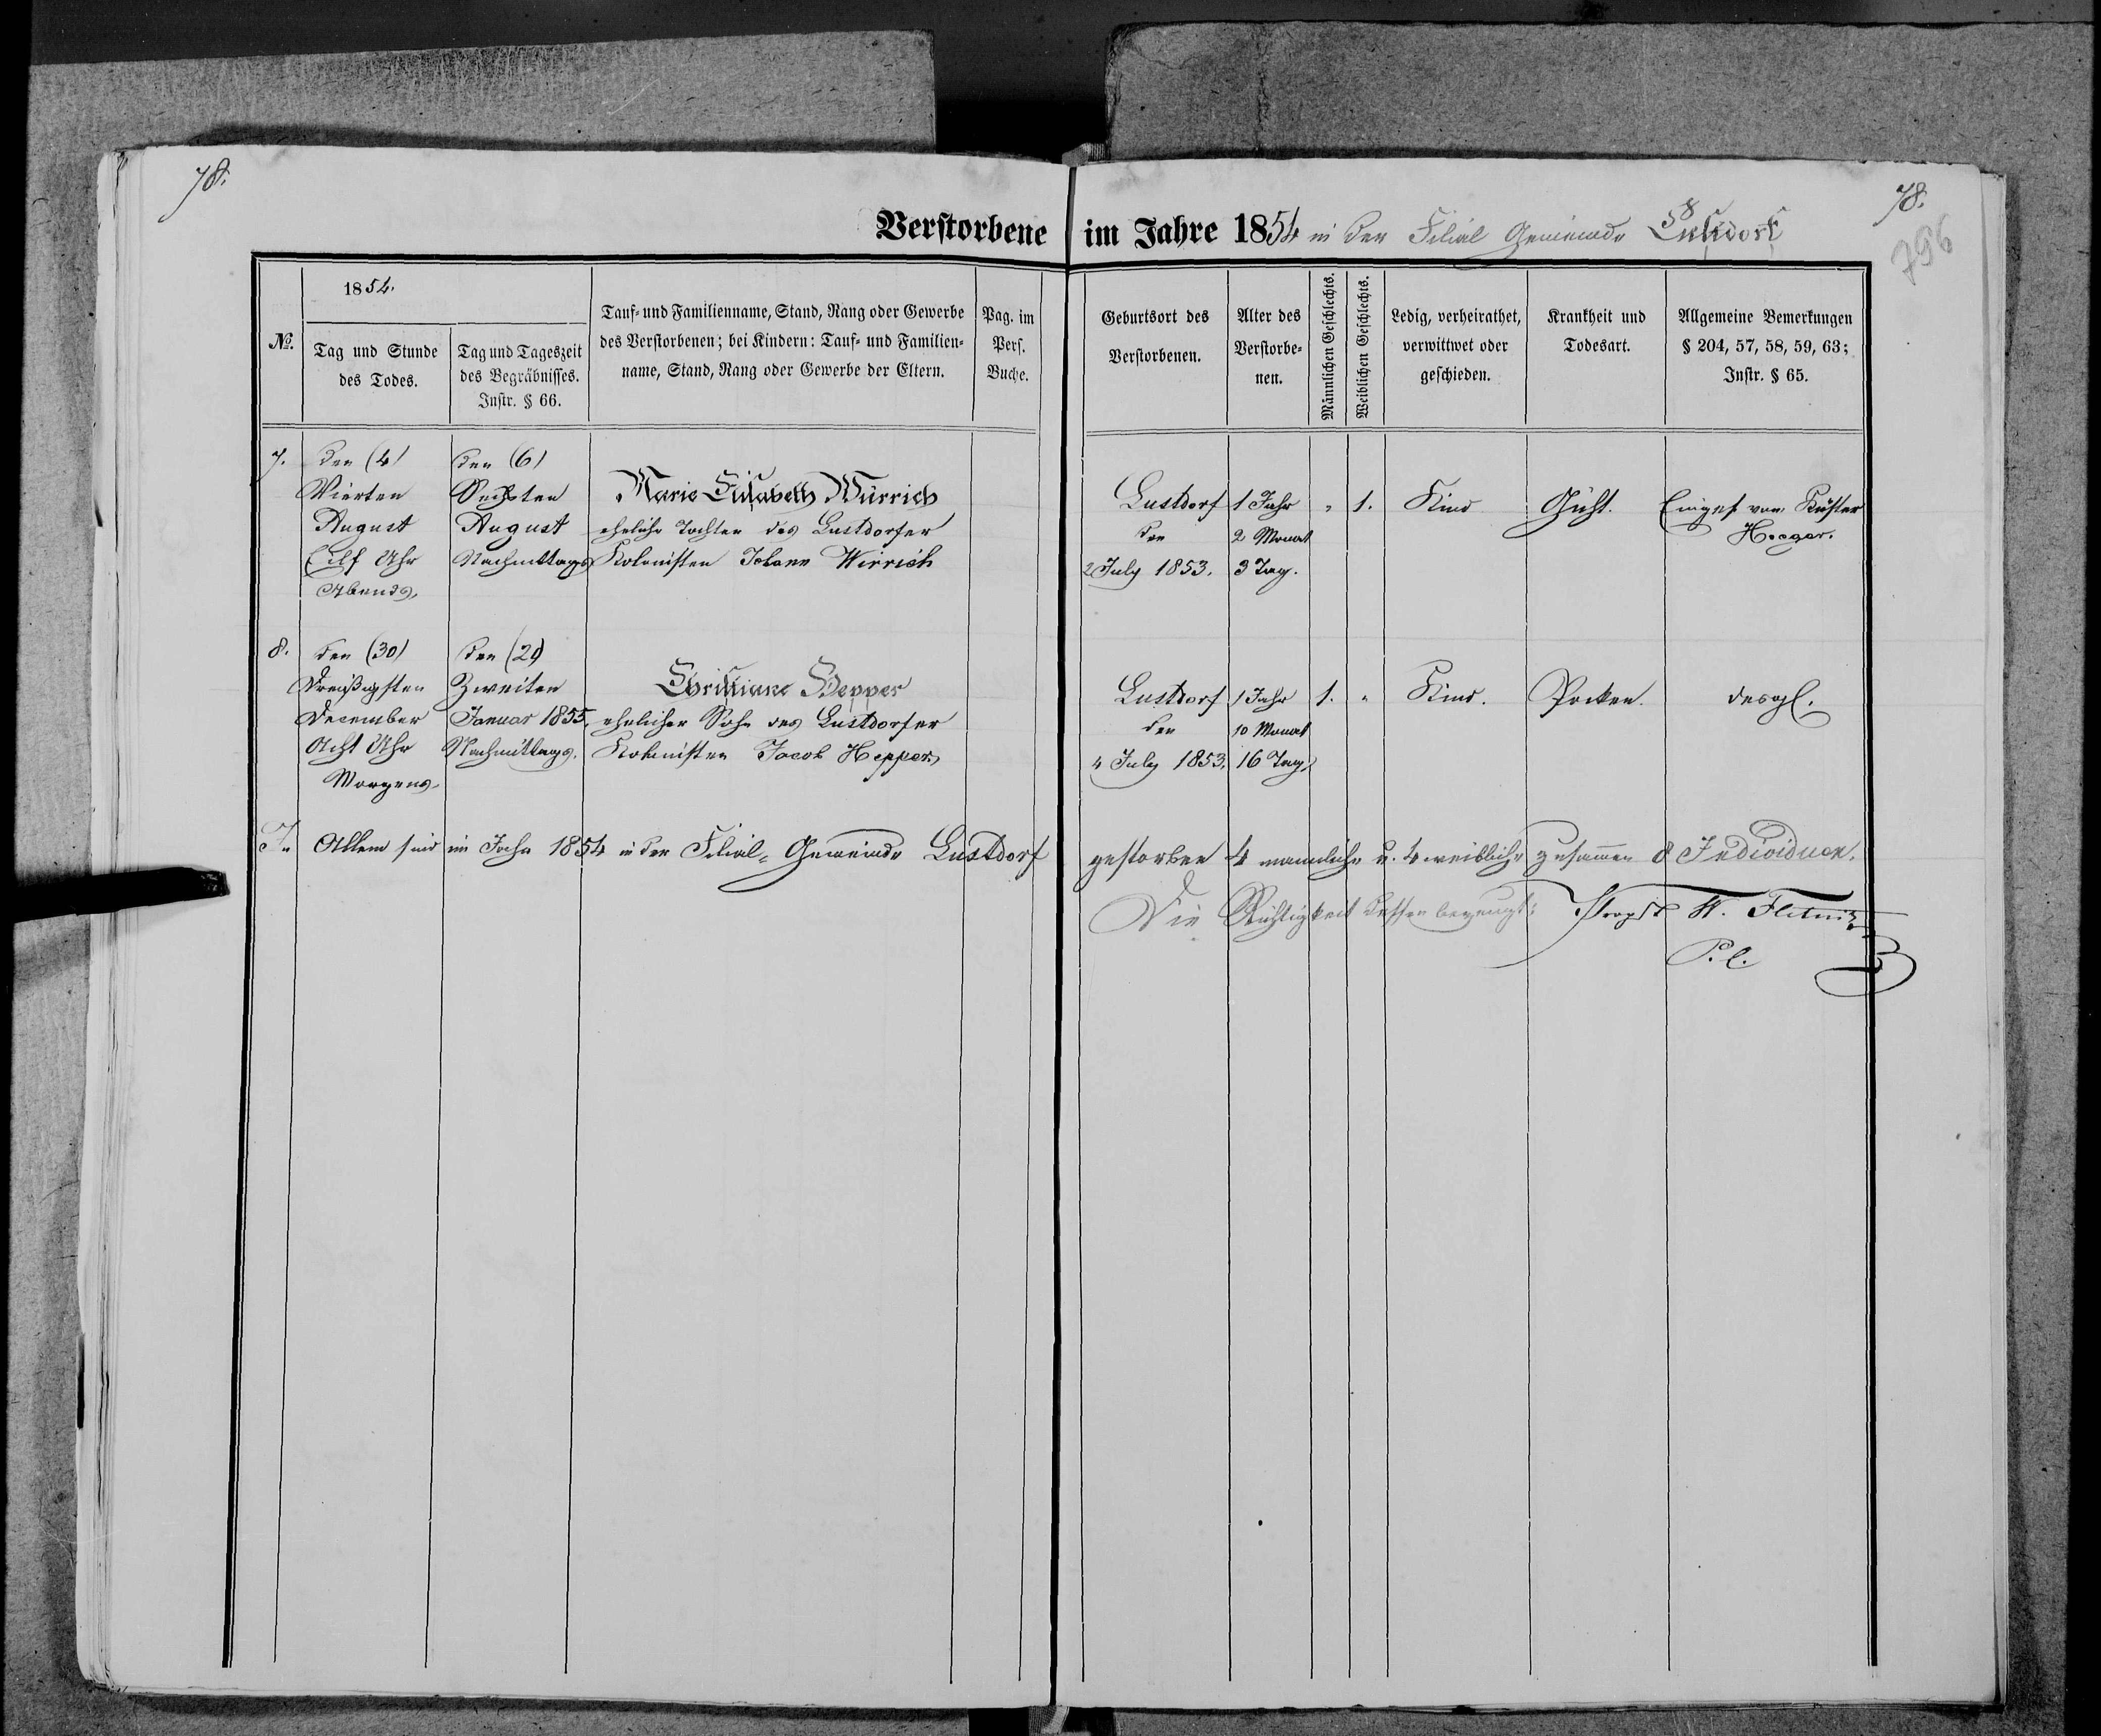 78.
78.
58
796
Verstorbene im Jahre 1854 in der Filial Gemeinde Lustdorf
1854.
№.
Tag und Stunde
des Todes.
Tag und Tageszeit
des Begräbnisses.
Instr. § 66.
Tauf- und Familienname, Stand, Rang oder Gewerbe
des Verstorbenen; bei Kindern: Tauf- und Familien-
name, Stand, Rang oder Gewerbe der Eltern.
Pag. im
Pers.
Buche.
Geburtsort des
Verstorbenen.
Alter des
Verstorbe-
nen.
Männlichen Geschlechts.
Weiblichen Geschlechts.
Ledig, verheirathet,
verwittwet oder
geschieden.
Krankheit und
Todesart.
Allgemeine Bemerkungen
§ 204, 57, 58, 59, 63;
Instr. § 65.
7.
den (4)
Vierten
August
Eilf Uhr
Abends,
den (6)
Sechsten
August
Nachmittags
Marie Elisabeth Würrich
eheliche Tochter des Lustdorfer
Kolonisten Johann Wirrich
Lustdorf
den
2 July 1853.
1 Jahr
2 Monat
3 Tag.
"
1.
Kind
Gicht.
Einges von Küster
Hoeger.
8.
den (30)
Dreißigsten
December
Acht Uhr
Morgens,
den (2)
Zweiten
Januar 1855,
Nachmittags.
Christiane Hepper
ehelicher Sohn des Lustdorfer
Kolonisten Jacob Hepper,
Lustdorf
den
4 July 1853.
1 Jahr
10 Monat
16 Tag,
1.
"
Kind.
Pocken.
desgl.
In Allem sind im Jahr 1854 in der Filial-Gemeinde Lustdorf gestorben 4 mannliche u. 4 weibliche zusammen 8 Individuen.
Die Richtigkeit dessen bezeugt: Propst W. Fletnitz
P. l.